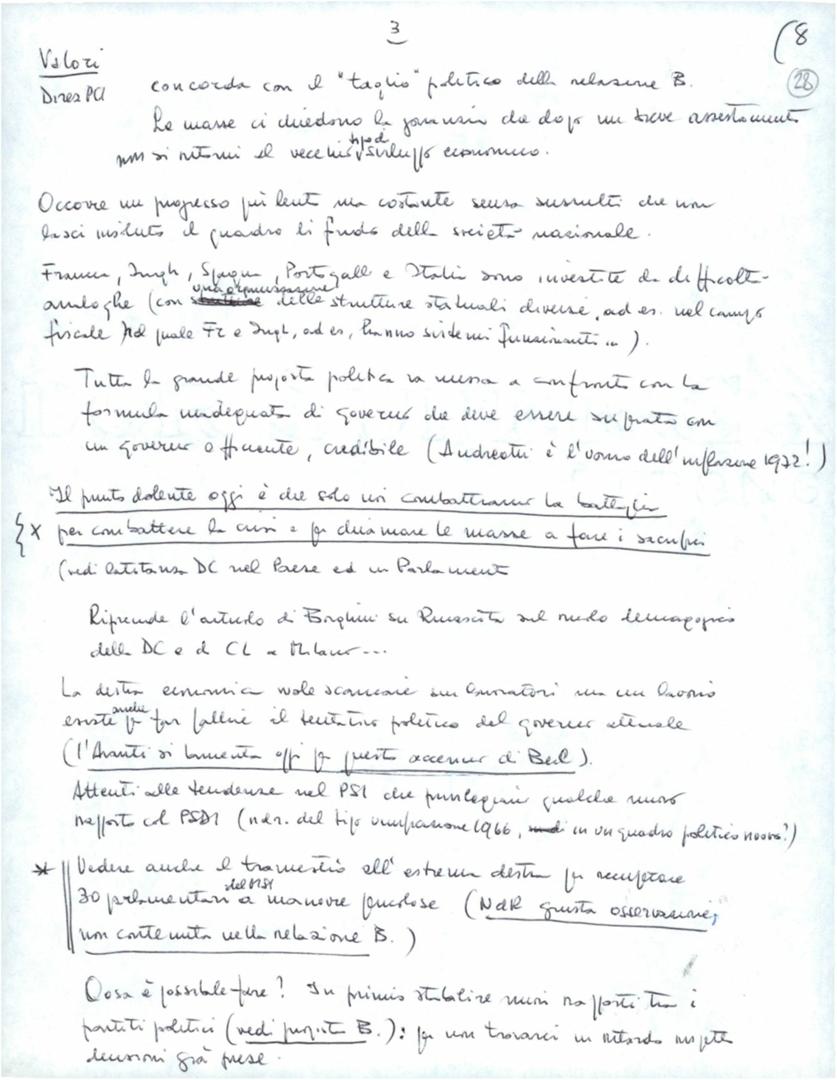 3
(8
28
Valori
Direz PCI
concorda con il "taglio" politico della relazione B.
Le masse ci chiedono la garanzia che dopo un breve assestamento
non si ritorni al vecchio tipo di sviluppo economico.
Occorre un progresso più lento ma costante senza sussulti che non
lasci insoluto il quadro di fondo della società nazionale.
Francia, Ingh, Spagna, Portogallo e Italia sono investite da difficoltà
analoghe (con una organizzazione delle strutture statuali diverse, ad es. nel campo
fiscale nel quale Fr e Ingh, ad es, hanno sistemi funzionanti...).
Tutta la grande proposta politica va messa a confronto con la
formula inadeguata di governo che deve essere superata con
un governo efficiente, credibile (Andreotti è l'uomo dell'inflazione 1972!)
Il punto dolente oggi è che solo noi combattiamo la battaglia
x per combattere la crisi e per chiamare le masse a fare i sacrifici
(vedi latitanza DC nel Paese ed in Parlamento
Riprende l'articolo di Borghini su Rinascita sul ruolo demagogico
della DC e di CL a Milano...
La destra economica vuole scaricare sui lavoratori ma un lavorio
esiste anche per far fallire il tentativo politico del governo attuale
(l'Avanti si lamenta oggi per questo accenno di Berl).
Attenti alle tendenze nel PSI che privilegiano qualche nuovo
rapporto col PSDI (ndr. del tipo unificazione 1966, in un quadro politico nuovo?)
* Vedere anche il tramestio all'estrema destra per recuperare
30 parlamentari del MSI a manovre pericolose (NdR giusta osservazione,
non contenuta nella relazione B.)
Cosa è possibile fare? In primis stabilire nuovi rapporti tra i
partiti politici (vedi proposta B.): per non trovarci in ritardo rispetto
decisioni già prese.